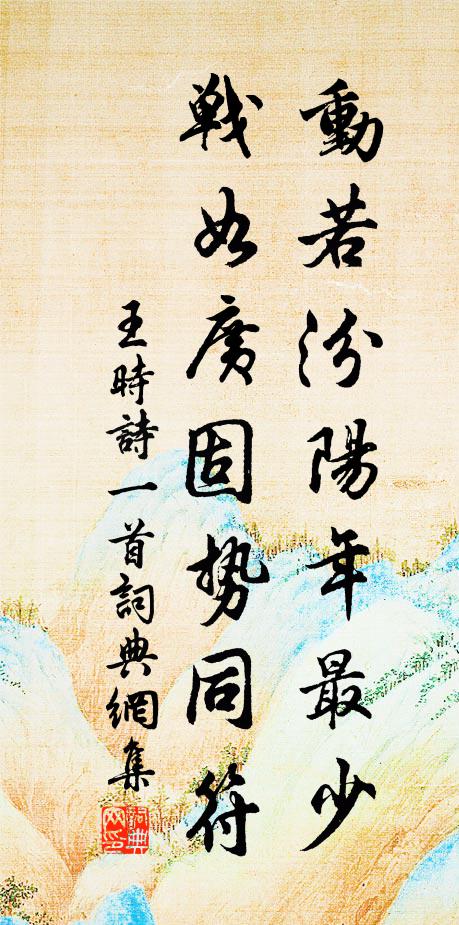 動若汾陽年最少
戦如廣固勢同符
王時詩一首詞典網集
詞典
网印